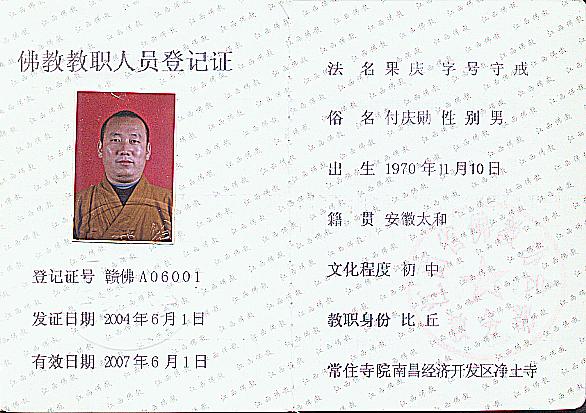 佛教教职人员登记证
登记证号 赣佛A06001
发证日期 2004年6月1日
有效日期 2007年6月1日
法名 果庆 字号 守戒
俗名 付庆勋 性别 男
出生 1970年11月10日
籍贯 安徽太和
文化程度 初中
教职身份 比丘
常住寺院 南昌经济开发区净土寺
江西佛教